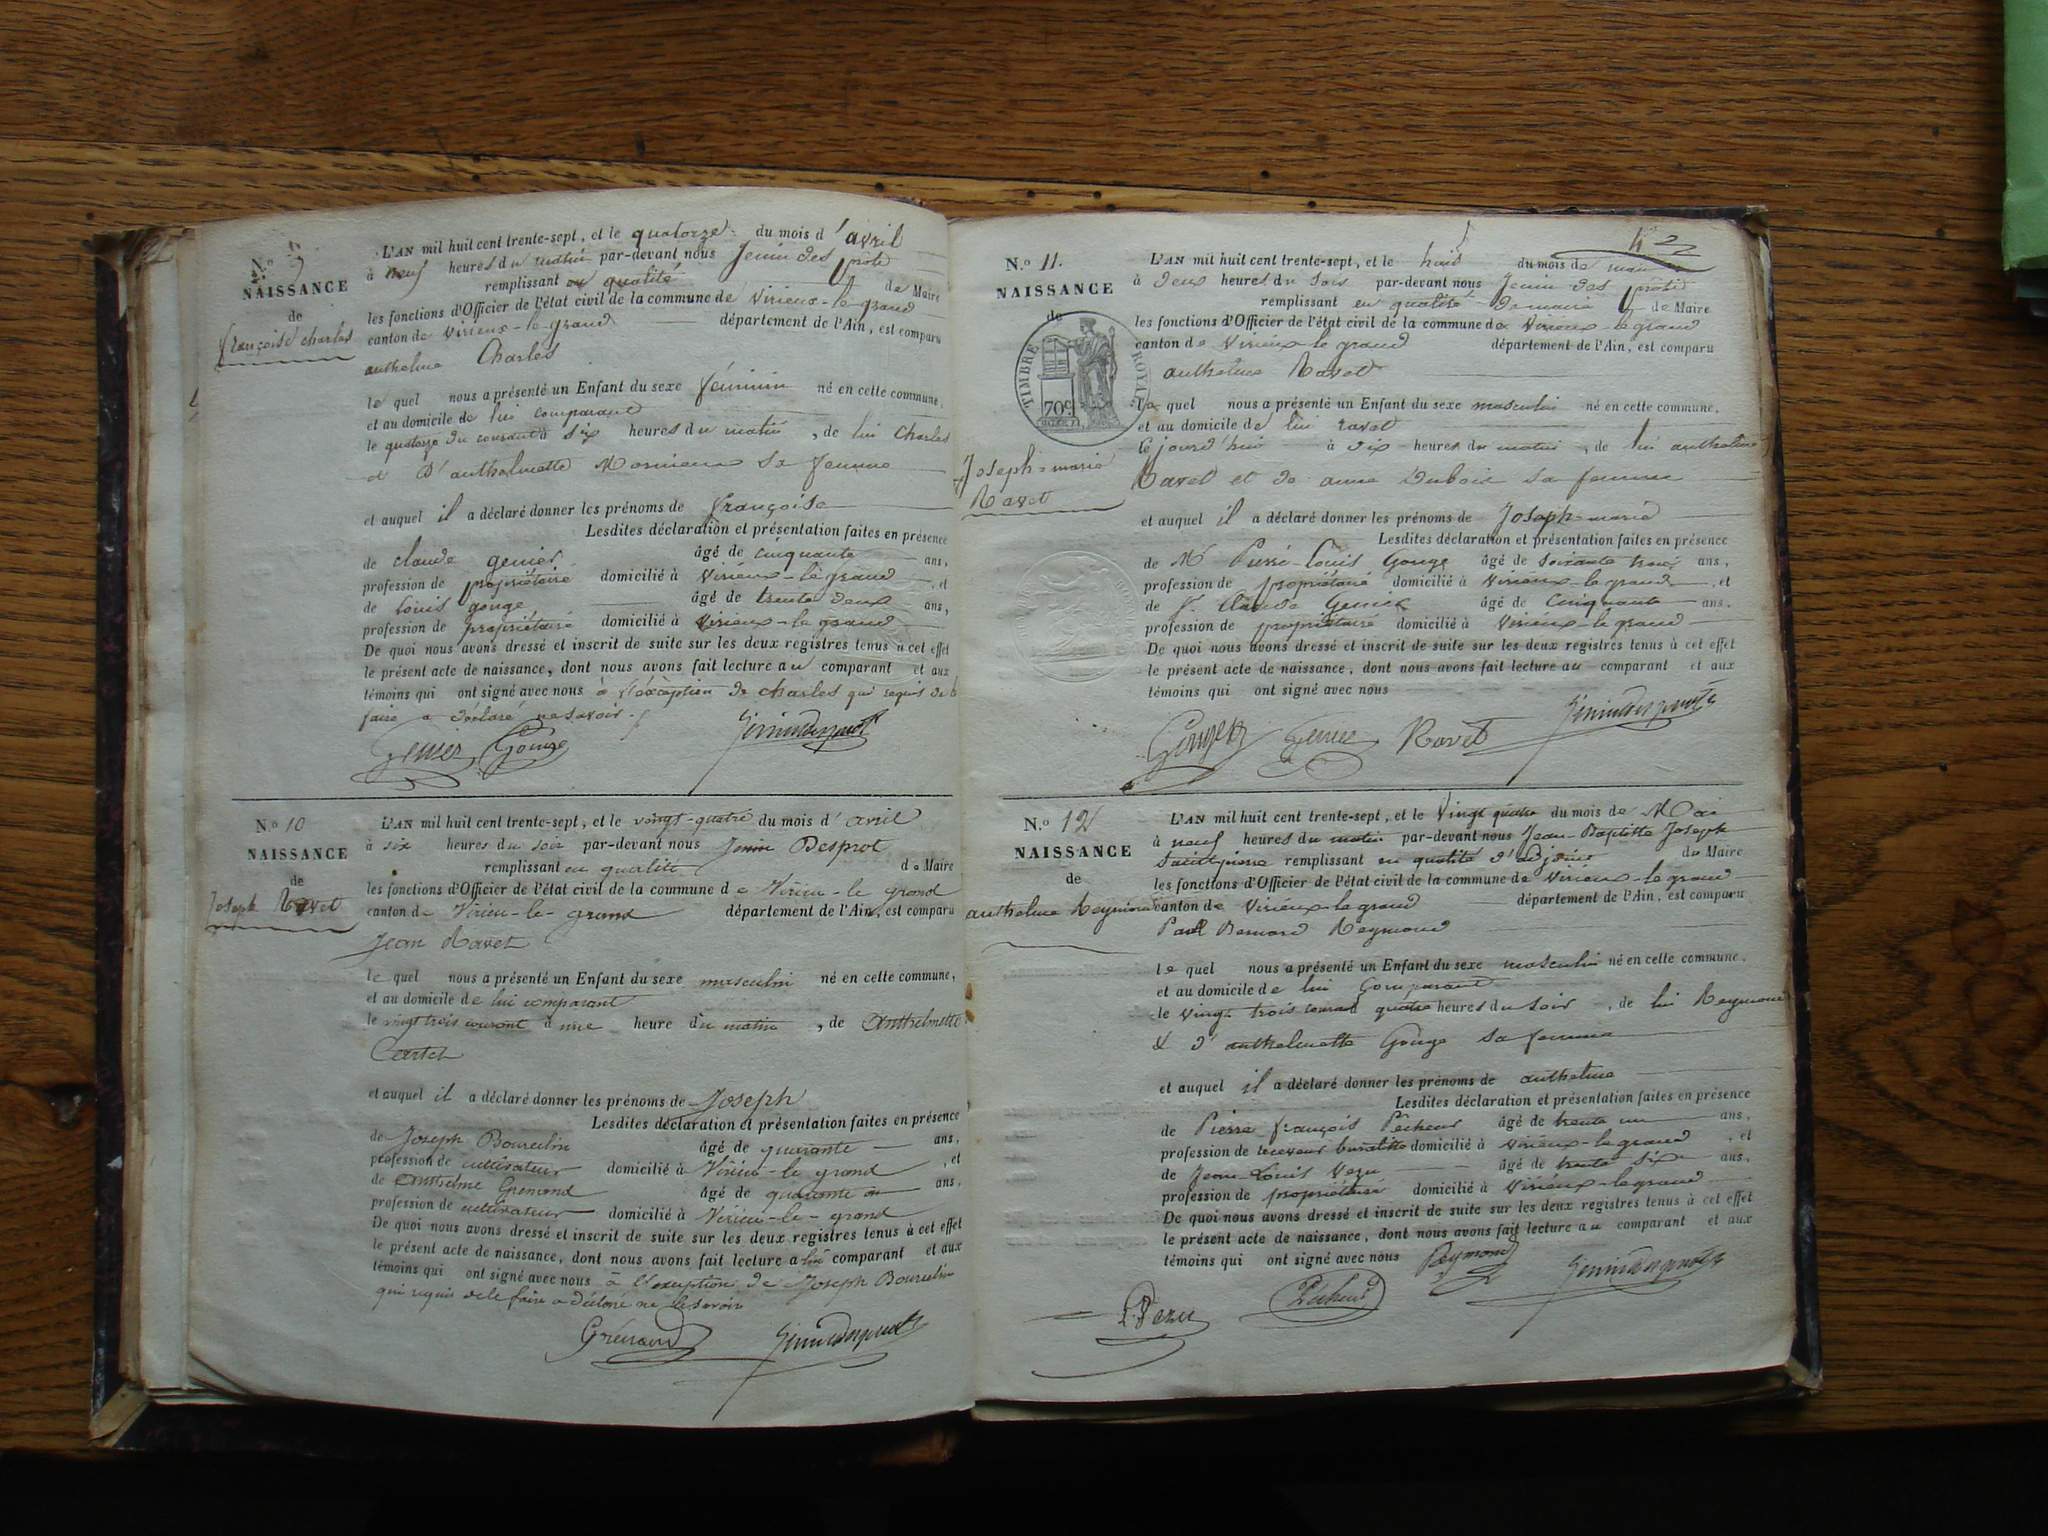 N.o 9
NAISSANCE
de
françoise charles
L'AN mil huit cent trente-sept, et le quatorze du mois d'avril
à neuf heures du matin par-devant nous Jenin des prots
remplissant en qualité de Maire
les fonctions d'Officier de l'état civil de la commune de Virieux-le-grand
canton de Virieux-le-grand département de l'Ain, est comparu
anthelme Charles
le quel nous a présenté un Enfant du sexe féminin né en cette commune,
et au domicile de lui comparant
le quatorze du courant à six heures du matin, de lui Charles
et d'anthelmette sa femme
et auquel il a déclaré donner les prénoms de françoise
Lesdites déclaration et présentation faites en présence
de claude genier âgé de cinquante ans,
profession de propriétaire domicilié à Virieux-le-grand, et
de louis gouge âgé de trente deux ans,
profession de propriétaire domicilié à Virieux-le-grand
De quoi nous avons dressé et inscrit de suite sur les deux registres tenus à cet effet
le présent acte de naissance, dont nous avons fait lecture au comparant et aux
témoins qui ont signé avec nous à l'éxception de charles qui requis de le
faire a déclaré ne savoir.
Genier Gouge Jenindesprots
N.o 10
NAISSANCE
de
Joseph Ravet
L'AN mil huit cent trente-sept, et le vingt-quatre du mois d'avril
à six heures du soir par-devant nous Jenin Desprot
remplissant en qualité de Maire
les fonctions d'Officier de l'état civil de la commune de Virieu-le grand
canton de Virieu-le-grand département de l'Ain, est comparu
Jean Ravet
le quel nous a présenté un Enfant du sexe masculin né en cette commune,
et au domicile de lui comparant
le vingt trois courant à une heure du matin, de Anthelmette
Cartet
et auquel il a déclaré donner les prénoms de Joseph
Lesdites déclaration et présentation faites en présence
de Joseph Bourcelin âgé de quarante ans,
profession de cultivateur domicilié à Virieu-le grand, et
de Anthelme Gremond âgé de quarante ans,
profession de cultivateur domicilié à Virieu-le-grand
De quoi nous avons dressé et inscrit de suite sur les deux registres tenus à cet effet
le présent acte de naissance, dont nous avons fait lecture a lui comparant et aux
témoins qui ont signé avec nous à l'exception de Joseph Bourcelin
qui requis de le faire a déclaré ne le savoir
Jenindesprots
N.o 11.
NAISSANCE
de
TIMBRE ROYAL
70c
Joseph-marie
Ravet
L'AN mil huit cent trente-sept, et le huit du mois de mai
à deux heures du soir par-devant nous Jenin des prots
remplissant en qualité de maire de Maire
les fonctions d'Officier de l'état civil de la commune de Virieux-le-grand
canton de Virieux-le grand département de l'Ain, est comparu
anthelme Ravet
le quel nous a présenté un Enfant du sexe masculin né en cette commune,
et au domicile de lui ravet
ce jourd'hui à dix heures du matin, de lui anthelme
Ravet et de anne Dubois sa femme
et auquel il a déclaré donner les prénoms de Joseph-marie
Lesdites déclaration et présentation faites en présence
de Mr Pierre-Louis Gouge âgé de soixante trois ans,
profession de propriétaire domicilié à Virieux-le-grand, et
de Sr. Claude Genier âgé de cinquante ans,
profession de propriétaire domicilié à Virieux-le-grand
De quoi nous avons dressé et inscrit de suite sur les deux registres tenus à cet effet
le présent acte de naissance, dont nous avons fait lecture au comparant et aux
témoins qui ont signé avec nous
Gouge Genier Ravet Jenindesprots
N.o 12
NAISSANCE
de
anthelme Reymond
L'AN mil huit cent trente-sept, et le vingt quatre du mois de Mai
à neuf heures du matin par-devant nous Jean-Baptiste Joseph
Saintpierre remplissant en qualité d'adjoint du Maire
les fonctions d'Officier de l'état civil de la commune de Virieux-le-grand
canton de Virieux-le grand département de l'Ain, est comparu
Paul Bernard Reymond
le quel nous a présenté un Enfant du sexe masculin né en cette commune,
et au domicile de lui comparant
le vingt trois courant quatre heures du soir, de lui Reymond
& d'anthelmette Gouge sa femme
et auquel il a déclaré donner les prénoms de anthelme
Lesdites déclaration et présentation faites en présence
de Pierre françois Pécheur âgé de trente un ans,
profession de receveur buraliste domicilié à Virieux-le grand, et
de Jean-Louis Vezu âgé de trente six ans,
profession de propriétaire domicilié à Virieux-le grand
De quoi nous avons dressé et inscrit de suite sur les deux registres tenus à cet effet
le présent acte de naissance, dont nous avons fait lecture au comparant et aux
témoins qui ont signé avec nous Reymond Jenindesprots
L. Vezu Pécheur